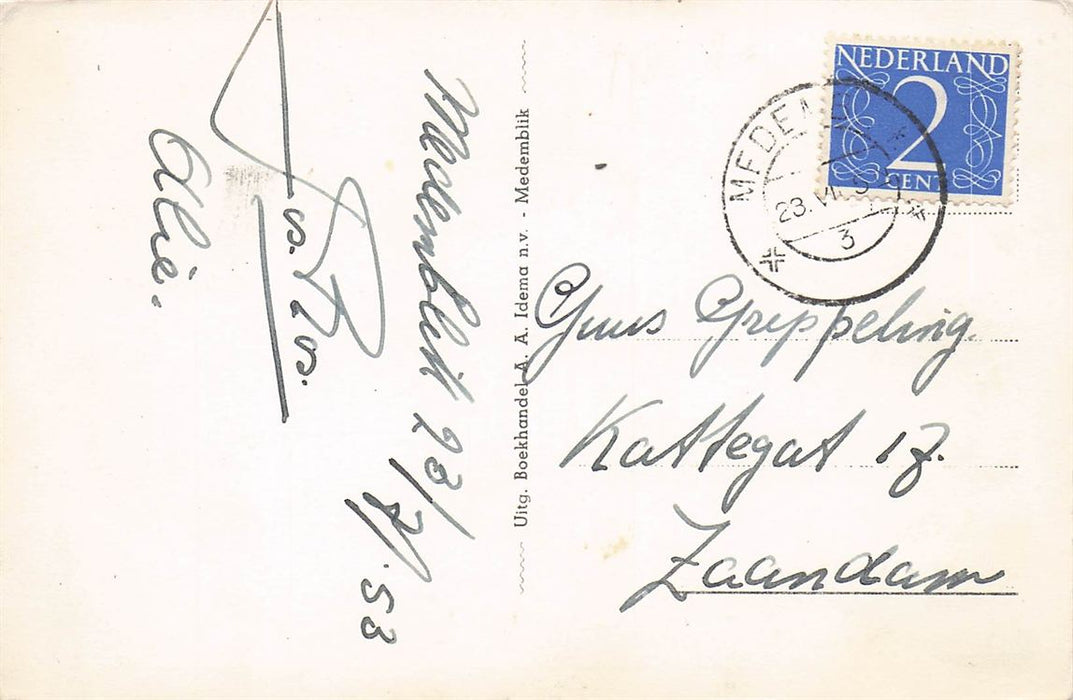 Medemblik 23/7/.53
Alie.
Uitg. Boekhandel A. A. Idema n.v. - Medemblik
NEDERLAND
2
CENT
MEDEMB
23.VII.5
3
Guus Greppeling.
Kattegat 17.
Zaandam